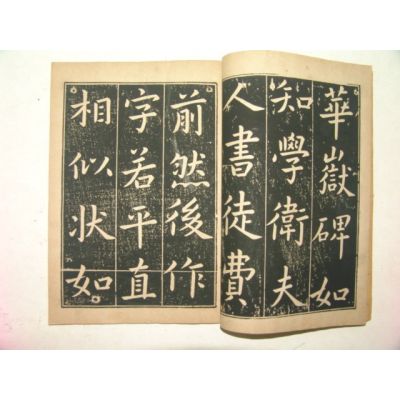 華嶽碑如
知學衛夫
人書徒費
前然後作
字若平直
相似状如